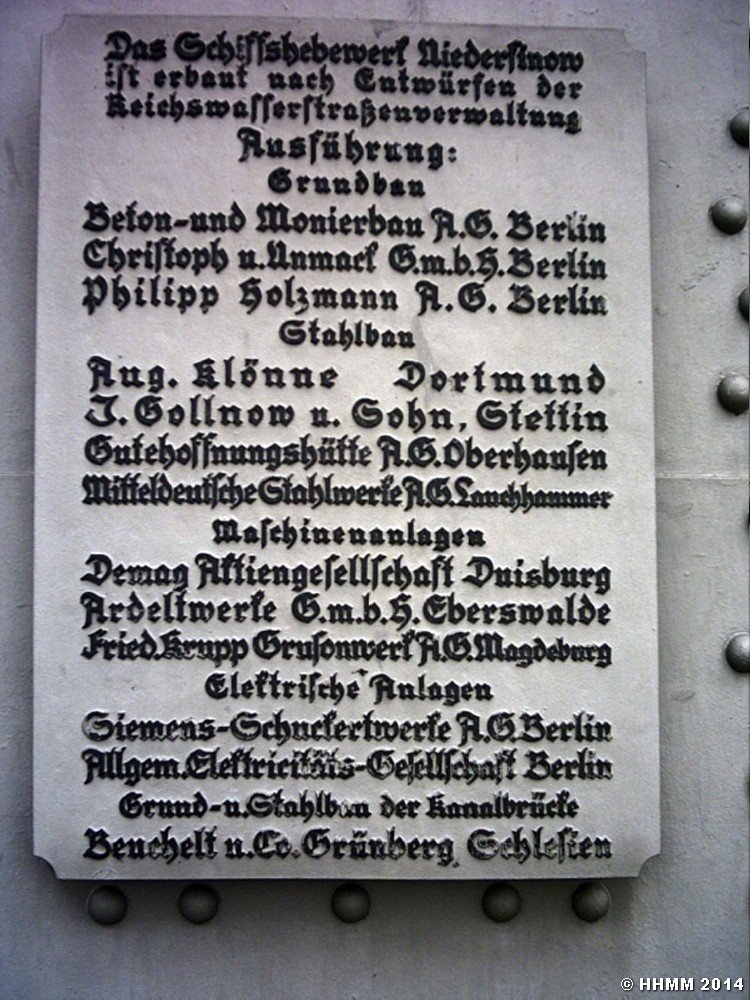 Das Schiffshebewerk Niederfinow
ist erbaut nach Entwürfen der
Reichswasserstraßenverwaltung
Ausführung:
Grundbau
Beton-und Monierbau A.G. Berlin
Christoph u.Unmack G.m.b.H.Berlin
Philipp Holzmann A.G. Berlin
Stahlbau
Aug. Klönne Dortmund
J.Gollnow u. Sohn, Stettin
Gutehoffnungshütte A.G.Oberhausen
Mitteldeutsche Stahlwerke A.G.Lauchhammer
Maschinenanlagen
Demag Aktiengesellschaft Duisburg
Ardeltwerke G.m.b.H.Eberswalde
Fried.Krupp Grusonwerk A.G.Magdeburg
Elektrische Anlagen
Siemens-Schuckertwerke A.G.Berlin
Allgem.Elektricitäts-Gesellschaft Berlin
Grund-u.Stahlbau der Kanalbrücke
Beuchelt u.Co.Grünberg Schlesien
© HHMM 2014